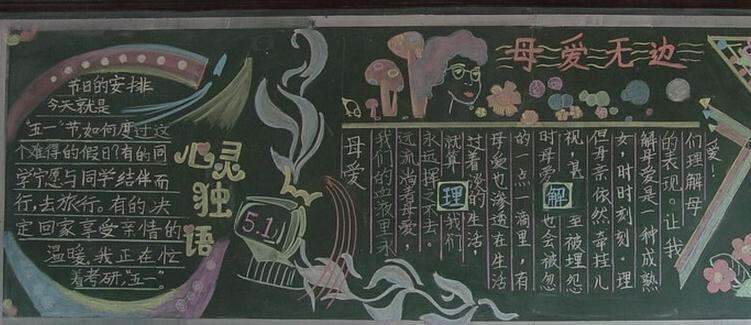 节日的安排
今天就是
"五一"节,如何度过这
个难得的假日?有的同
学宁愿与同学结伴而
行,去旅行。有的决
定回家享受亲情的
温暖,我正在忙
着考研,"五一"。
心灵
独
语
5.1
母爱无边
母爱
我们的血液里永
远流淌着母爱,
永远挥之不去。
就算 理 我们
过着淡的生活,
母爱也渗透在生活
的一点一滴里,有
时母爱 解 也会被忽
视,甚至被埋怨
但母亲依然牵挂儿
女,时时刻刻。理
解母爱是一种成熟
的表现。让我
们理解母
爱!